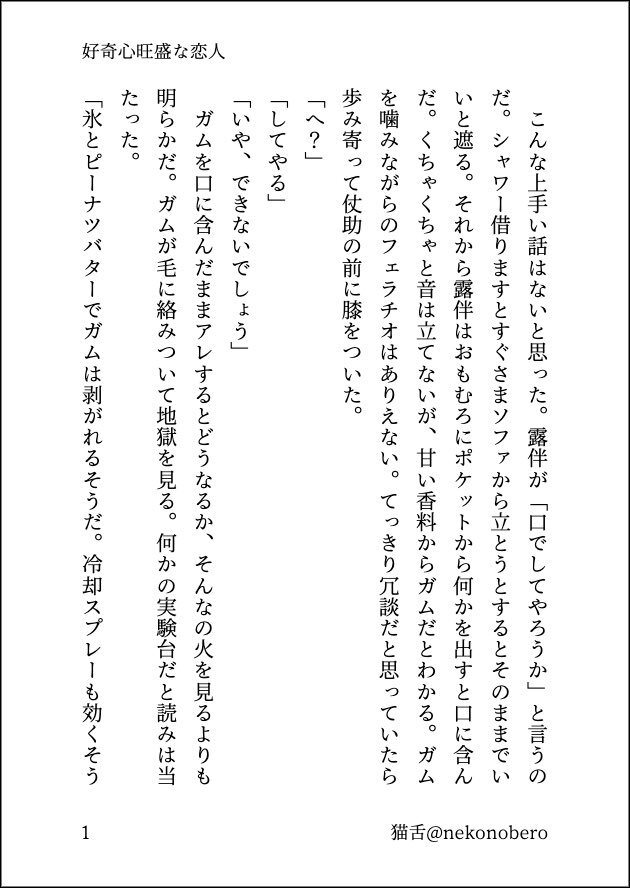 好奇心旺盛な恋人
　こんな上手い話はないと思った。露伴が「口でしてやろうか」と言うの
だ。シャワー借りますとすぐさまソファから立とうとするとそのままでい
いと遮る。それから露伴はおもむろにポケットから何かを出すと口に含ん
だ。くちゃくちゃと音は立てないが、甘い香料からガムだとわかる。ガム
を噛みながらのフェラチオはありえない。てっきり冗談だと思っていたら
歩み寄って仗助の前に膝をついた。
「へ？」
「してやる」
「いや、できないでしょう」
　ガムを口に含んだままアレするとどうなるか、そんなの火を見るよりも
明らかだ。ガムが毛に絡みついて地獄を見る。何かの実験台だと読みは当
たった。
「氷とピーナツバターでガムは剥がれるそうだ。冷却スプレーも効くそう
1
猫舌@nekonobero